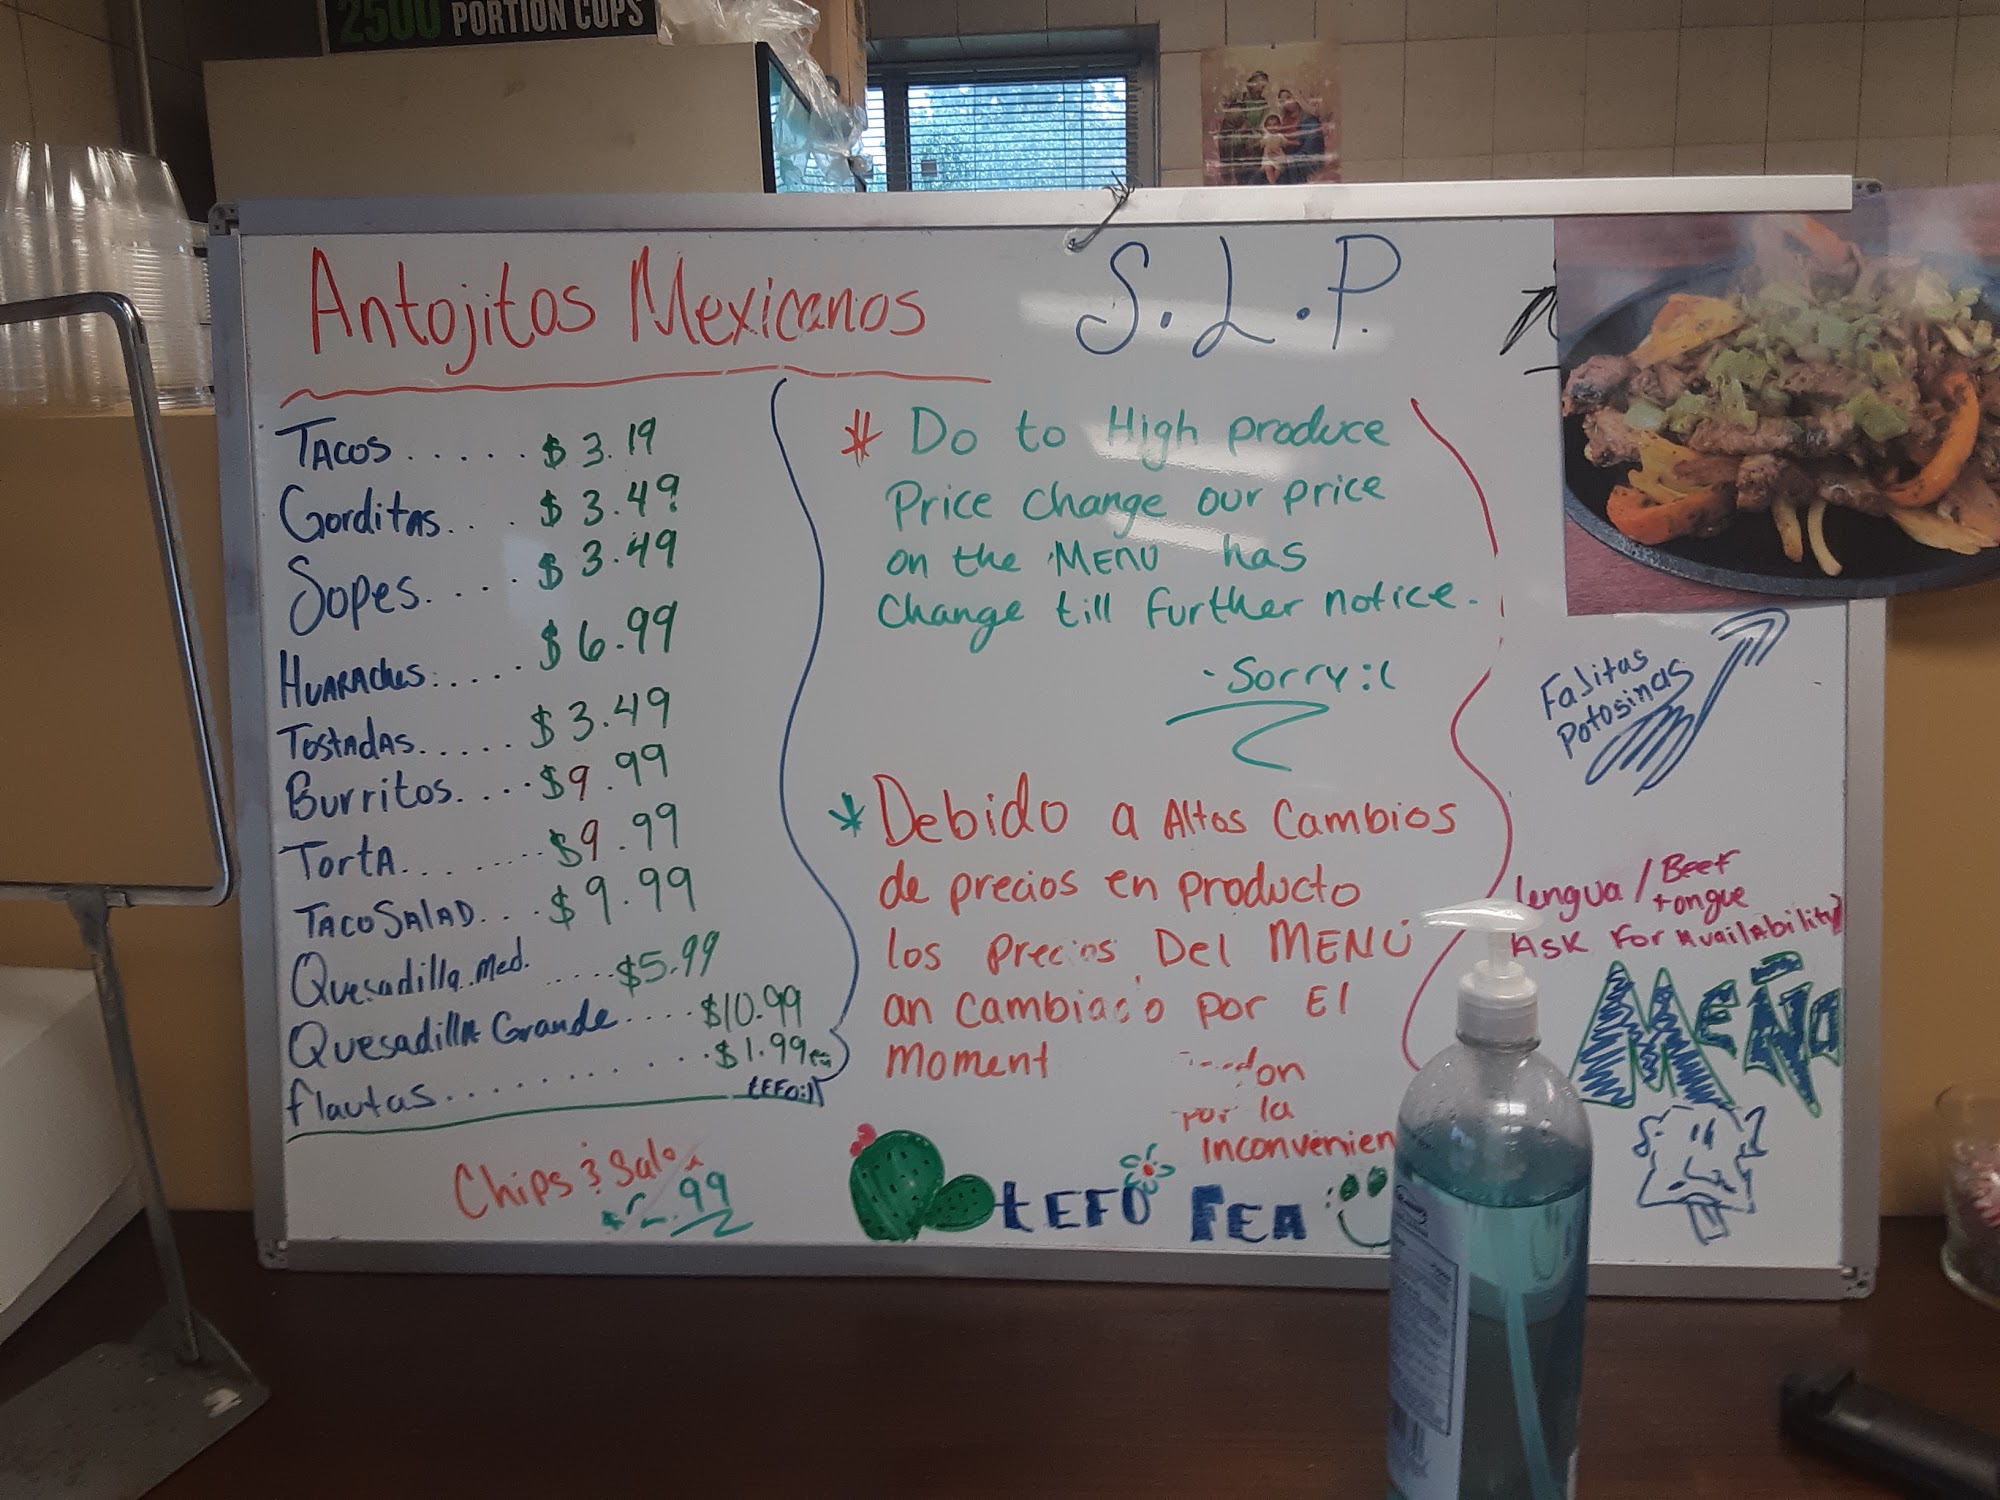 2500 PORTION CUPS
Antojitos Mexicanos
S.L.P.
TACOS ...... $ 3.19
Gorditas... $ 3.49
Sopes.... $ 3.49
HUARAChes..... $ 6.99
TostadAs...... $ 3.49
Burritos..... $9.99
TortA......... $9.99
TACO SALAD.... $ 9.99
Quesadilla Med. .....$5.99
QuesadillA Grande.....$10.99
flautas............$1.99ea
tEFO:)
Chips & Salsa
.99
* Do to High produce
Price change our price
on the MENU has
change till further notice.
-Sorry :(
* Debido a Altos Cambios
de precios en producto
los precios Del MENÚ
an cambiado por El
moment
por la
inconvenien
tEFO FEA
Fajitas
Potosinas
lengua / Beef
tongue
ASk For Availability
MEÑO